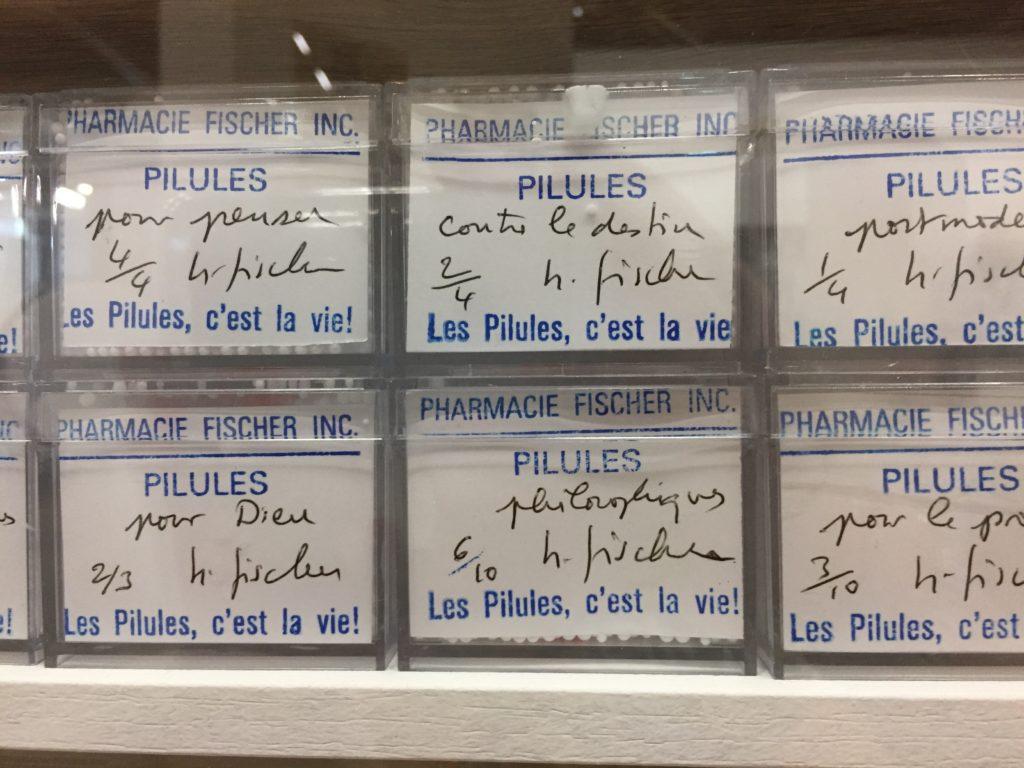 PHARMACIE FISCHER INC.
PILULES
pour penser
4/4 h. fischer
Les Pilules, c'est la vie!
PHARMACIE FISCHER INC
PILULES
contre le destin
2/4 h. fischer
Les Pilules, c'est la vie
PHARMACIE FISCH
PILULES
postmode
1/4 h. fisch
Les Pilules, c'est
PHARMACIE FISCHER INC.
PILULES
pour Dieu
2/3 h. fischer
Les Pilules, c'est la vie!
PHARMACIE FISCHER INC.
PILULES
philosophiques
6/10 h. fischer
Les Pilules, c'est la vie!
PHARMACIE FISCHE
PILULES
pour le pro
3/10 h. fisc
Les Pilules, c'est